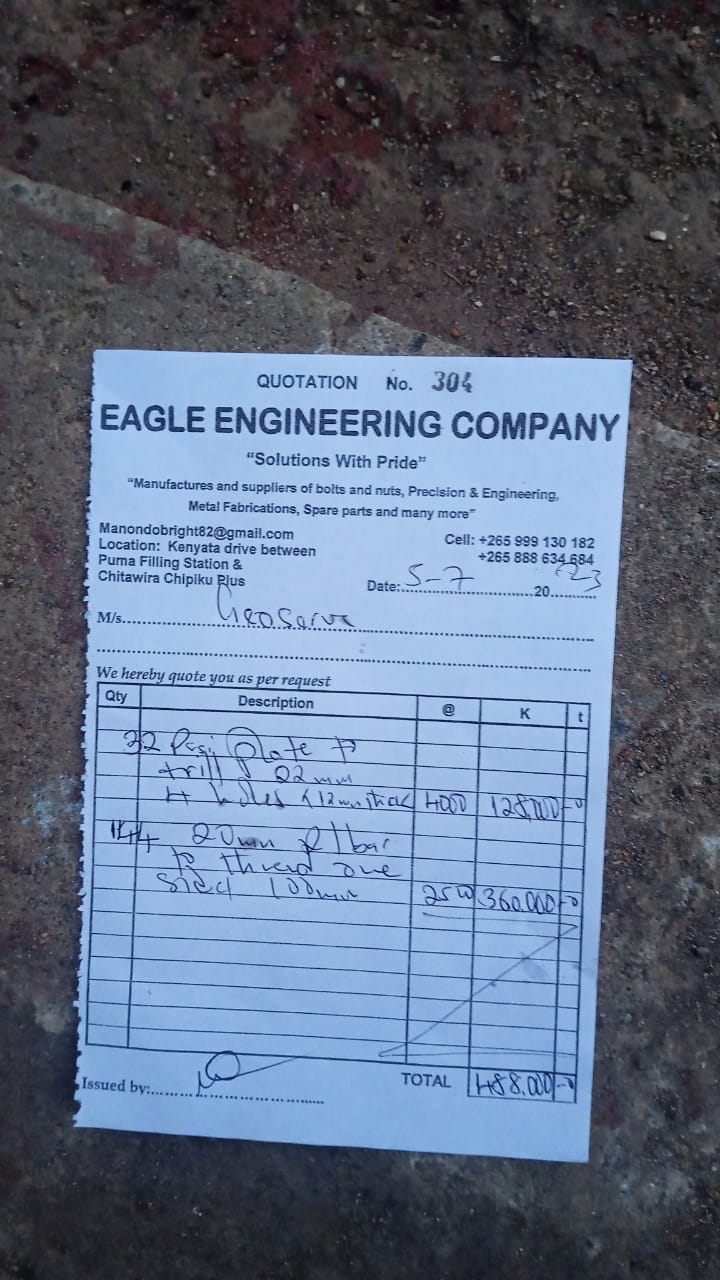 QUOTATION No. 304
EAGLE ENGINEERING COMPANY
"Solutions With Pride"
"Manufactures and suppliers of bolts and nuts, Precision & Engineering,
Metal Fabrications, Spare parts and many more"
Manondobright82@gmail.com
Location: Kenyata drive between
Puma Filling Station &
Chitawira Chipiku Plus
Cell: +265 999 130 182
+265 888 634 684
Date: 5-7 20 23
M/s. Geoserve
We hereby quote you as per request
Qty Description @ K t
32 plate to
drill 22mm
4 holes 12mm thick 4000 128,000 -0
144 20mm bar
to thread one
side 100mm 2500 360.000 -0
Issued by:
TOTAL 488.000 -0